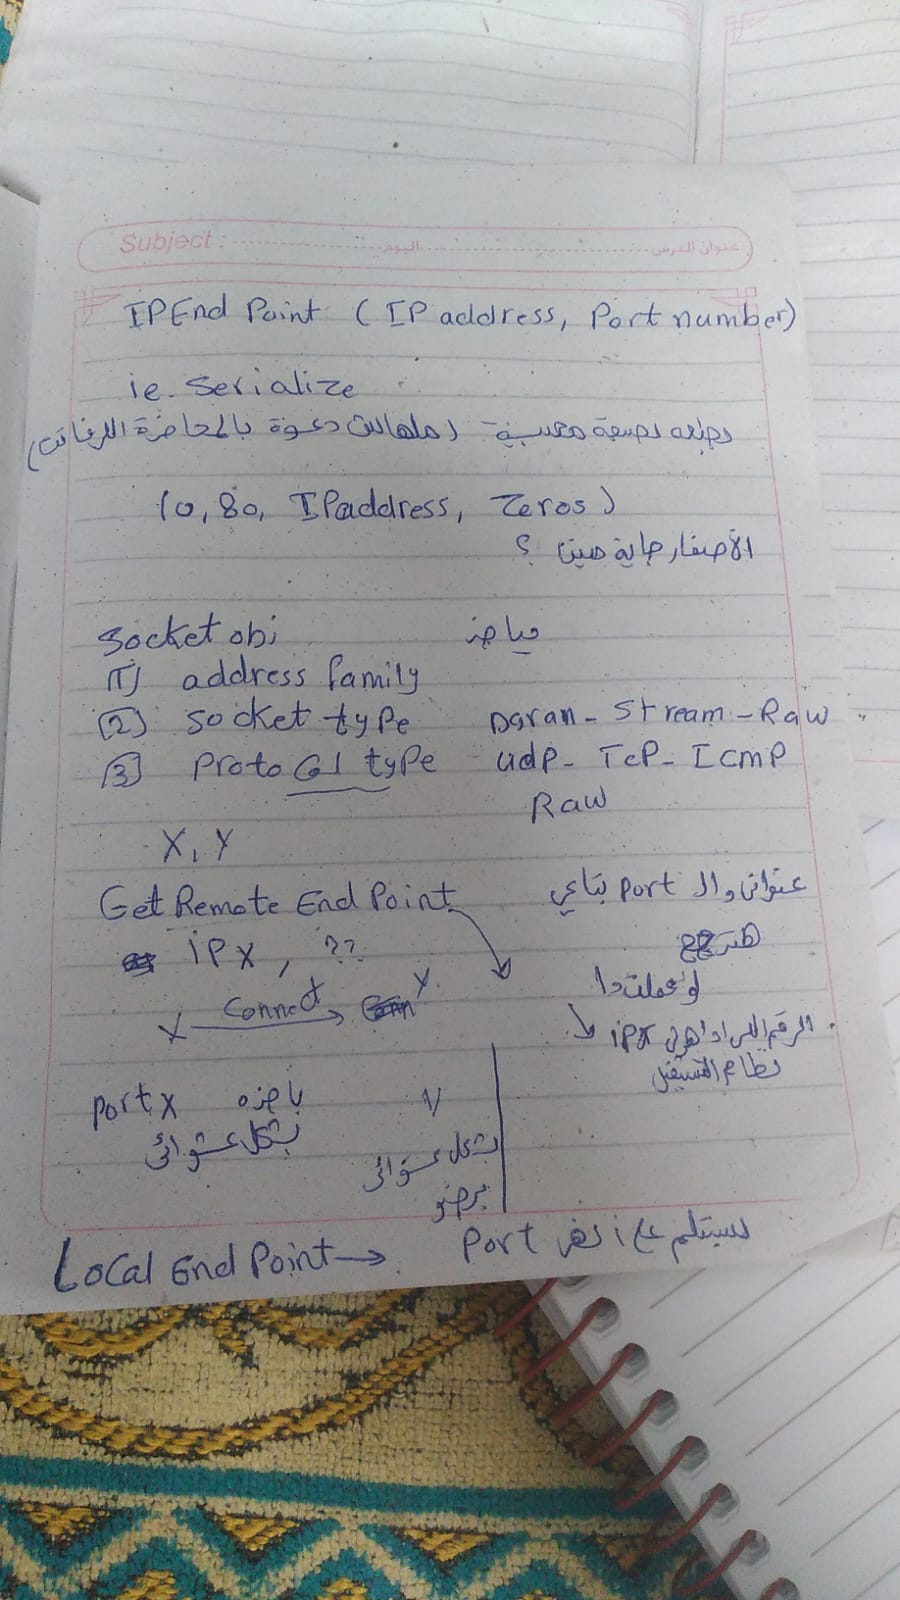 Subject : اليوم عنوان الدرس
IPEnd Point (IP address, Port number)
ie. Serialize
بصيغة معينة (ملهاش دعوة بالمحاضرة اللي فاتت)
(0, 80, IPaddress, Zeros)
الأصفار جاية منين ؟
Socket obj بياخد
(1) address family
(2) socket type Dgran - Stream - Raw
(3) Proto Col type udp - TcP - Icmp
Raw
X, Y
Get Remote End Point عنوانى وال Port بتاعي
iPx, ?? هترجع
X Connect Y لو عملت دا
الرقم اللى ipx
نظام التشغيل
Portx ياخده
بشكل عشوائى
y
بشكل عشوائى
برضو
Local End Point → Port